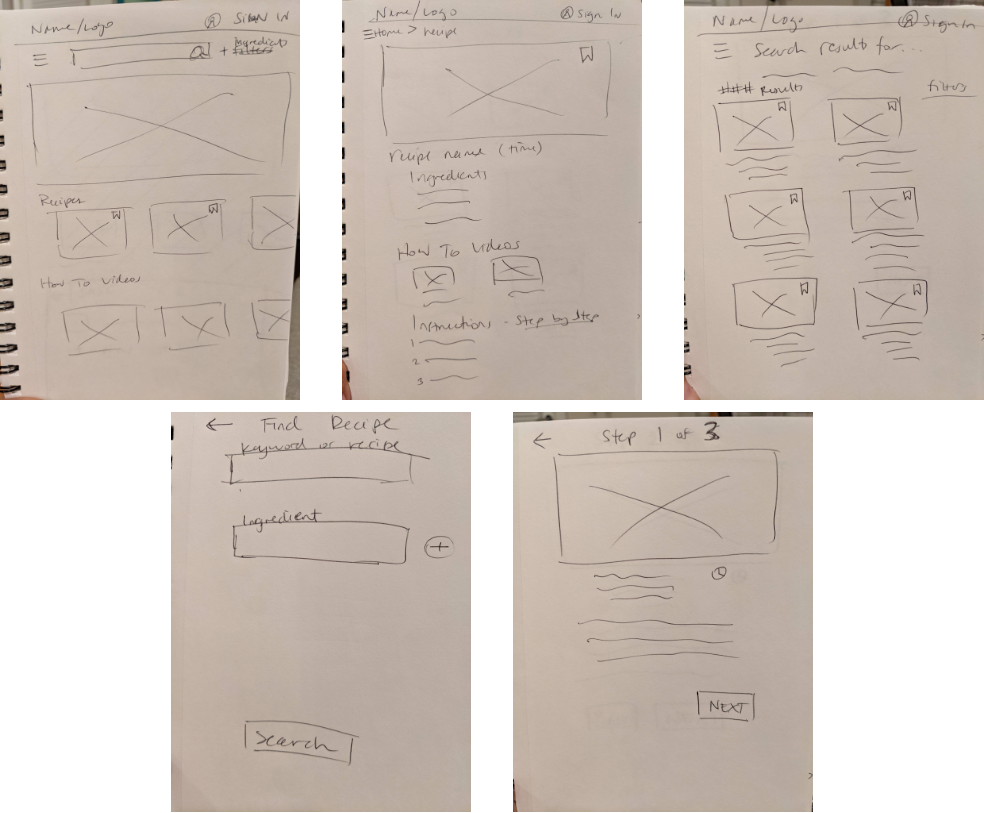 Name/Logo
SIGN IN
+ Ingredients
filters
Recipes
How To Videos
Name/Logo
Sign In
Home > recipe
recipe name (time)
Ingredients
How To Videos
Instructions - Step by Step
1
2
3
Name/Logo
Sign in
Search result for...
### Results
filters
← Find Recipe
Keyword or recipe
Ingredient
+
Search
← Step 1 of 3
NEXT